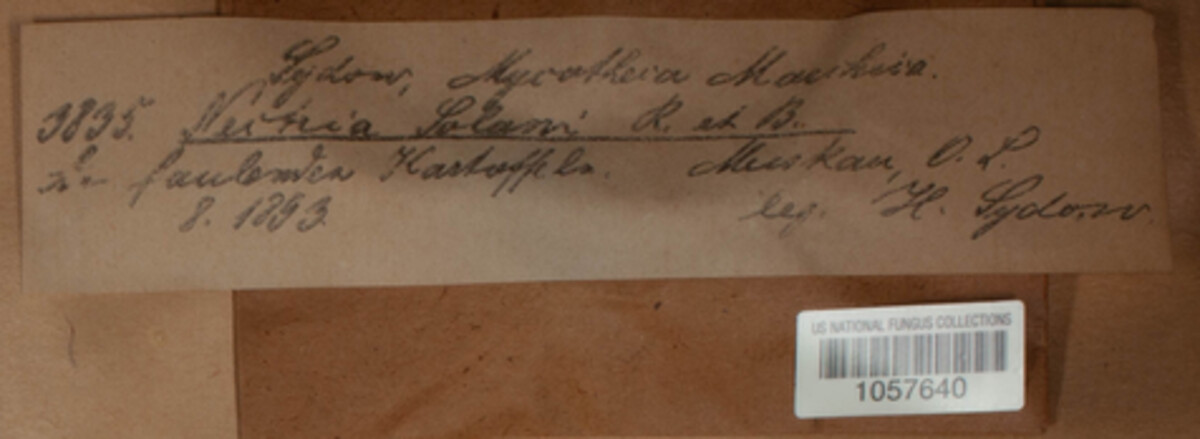 Sydow, Mycotheca Marchica.
3835. Nectria Solani R. et B.
An faulenden Kartoffeln. Muskau, O. L.
8. 1893 leg. H. Sydow.
US NATIONAL FUNGUS COLLECTIONS
1057640